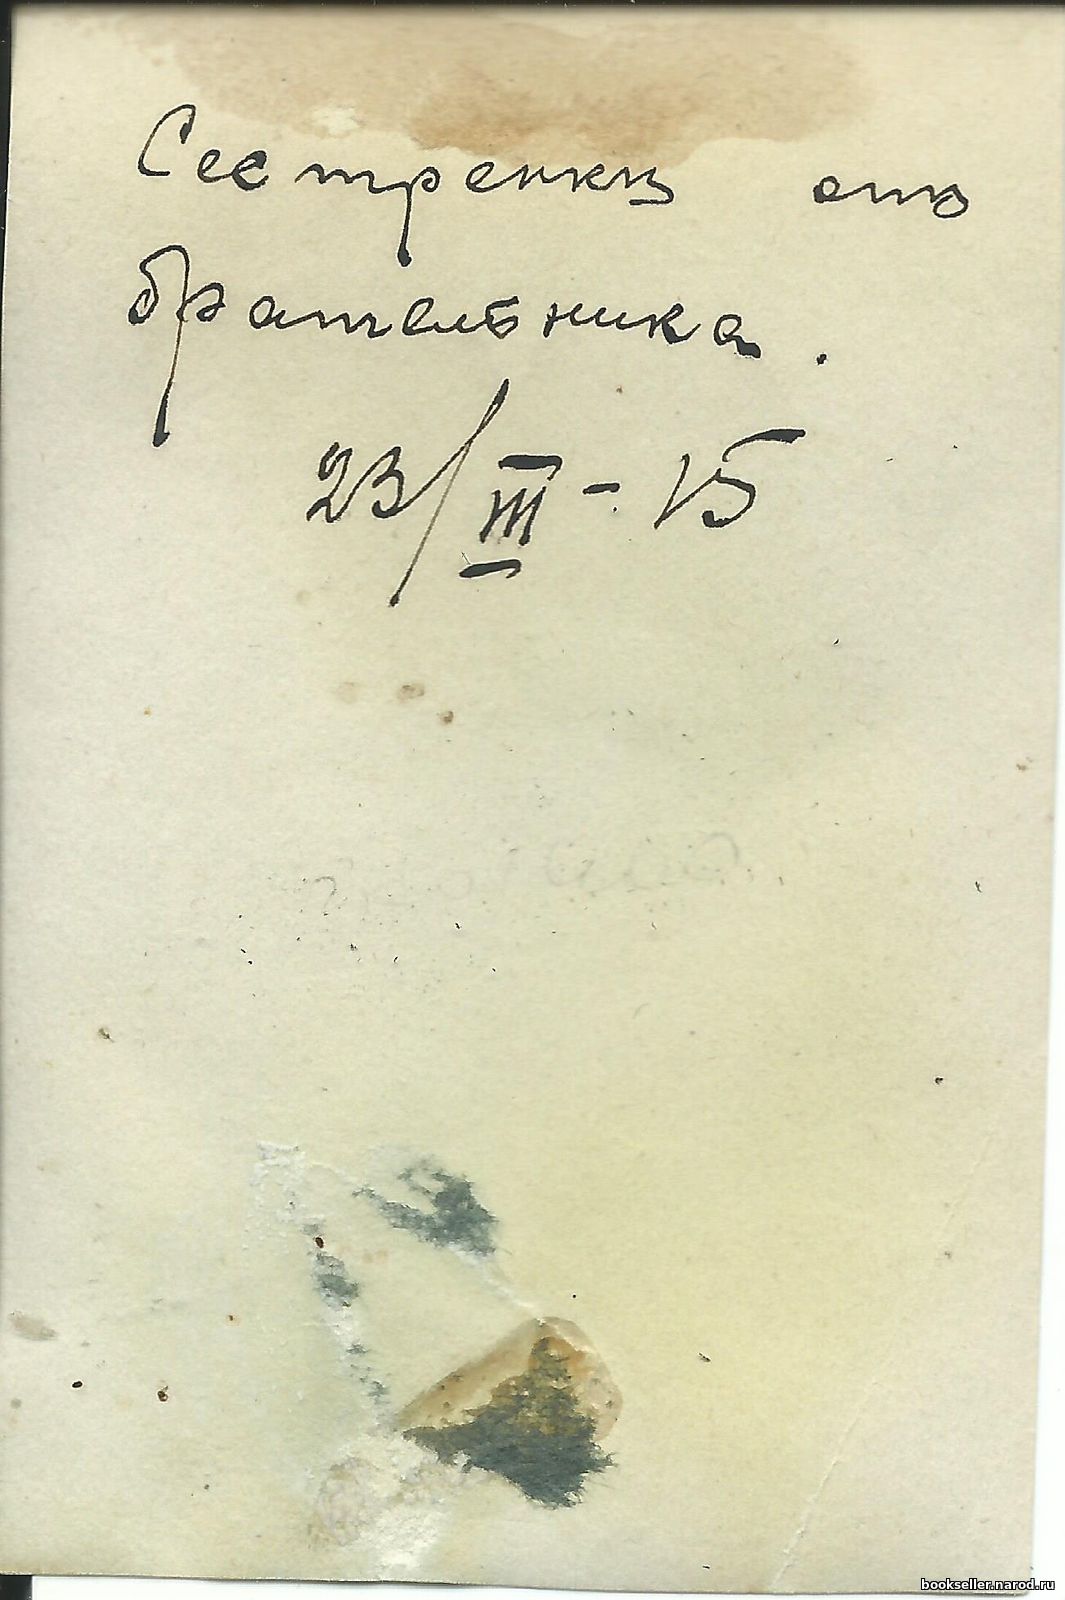 Сестренкѣ отъ
брательника.
23/III - 15
bookseller.narod.ru